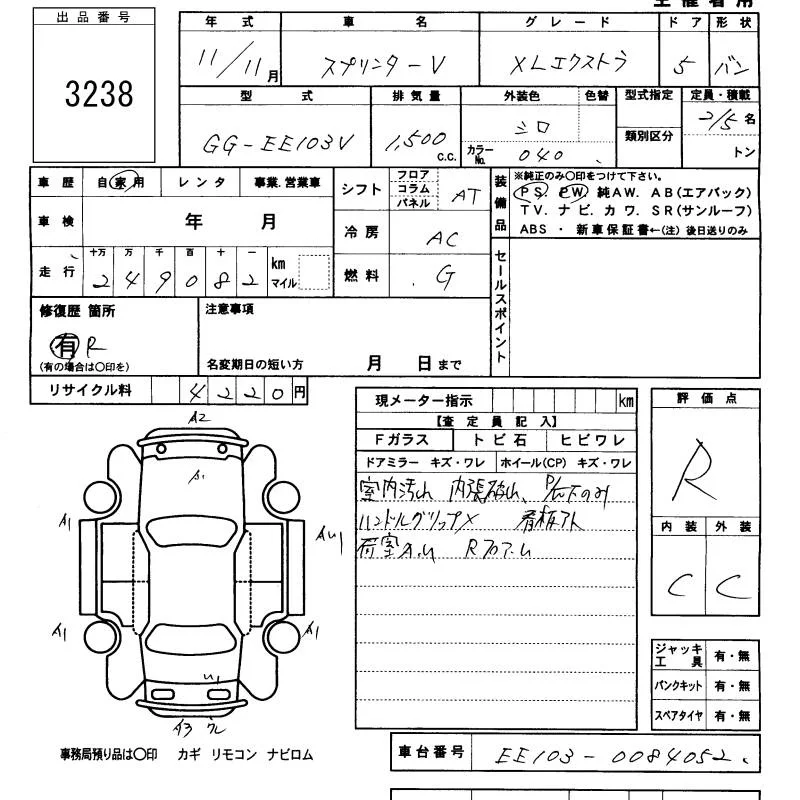 出品番号
3238
年式 車名 グレード ドア 形状
11/11月 スプリンターV XLエクストラ 5 バン
型式 排気量 外装色 色替 型式指定 定員・積載
GG-EE103V 1,500 c.c. シロ 2/5名
カラーNo. 040 類別区分 トン
車歴 自家用 レンタ 事業.営業車
シフト フロア コラム パネル AT
車検 年 月
冷房 AC
走行 十万 万 千 百 十 一
249082 km マイル
燃料 G
装備品
※純正のみ〇印をつけて下さい。
PS. PW. 純AW. AB(エアバック)
TV. ナビ. カワ. SR(サンルーフ)
ABS ・ 新車保証書←(注) 後日送りのみ
セールスポイント
修復歴 箇所
有 R
(有の場合は〇印を)
注意事項
名変期日の短い方 月 日まで
リサイクル料 4220円
現メーター指示 km
【査定員記入】
Fガラス トビ石 ヒビワレ
ドアミラー キズ・ワレ ホイール(CP) キズ・ワレ
室内汚れ 内張破れ、 のみ
ハンドルグリップ× 看板アト
荷室A.U Rフロア.U
評価点
R
内装 外装
C C
A2
A1
A1
AU1
A1
A1
U1
A3
ジャッキ工具 有・無
パンクキット 有・無
スペアタイヤ 有・無
事務局預り品は〇印 カギ リモコン ナビロム
車台番号 EE103-0084052